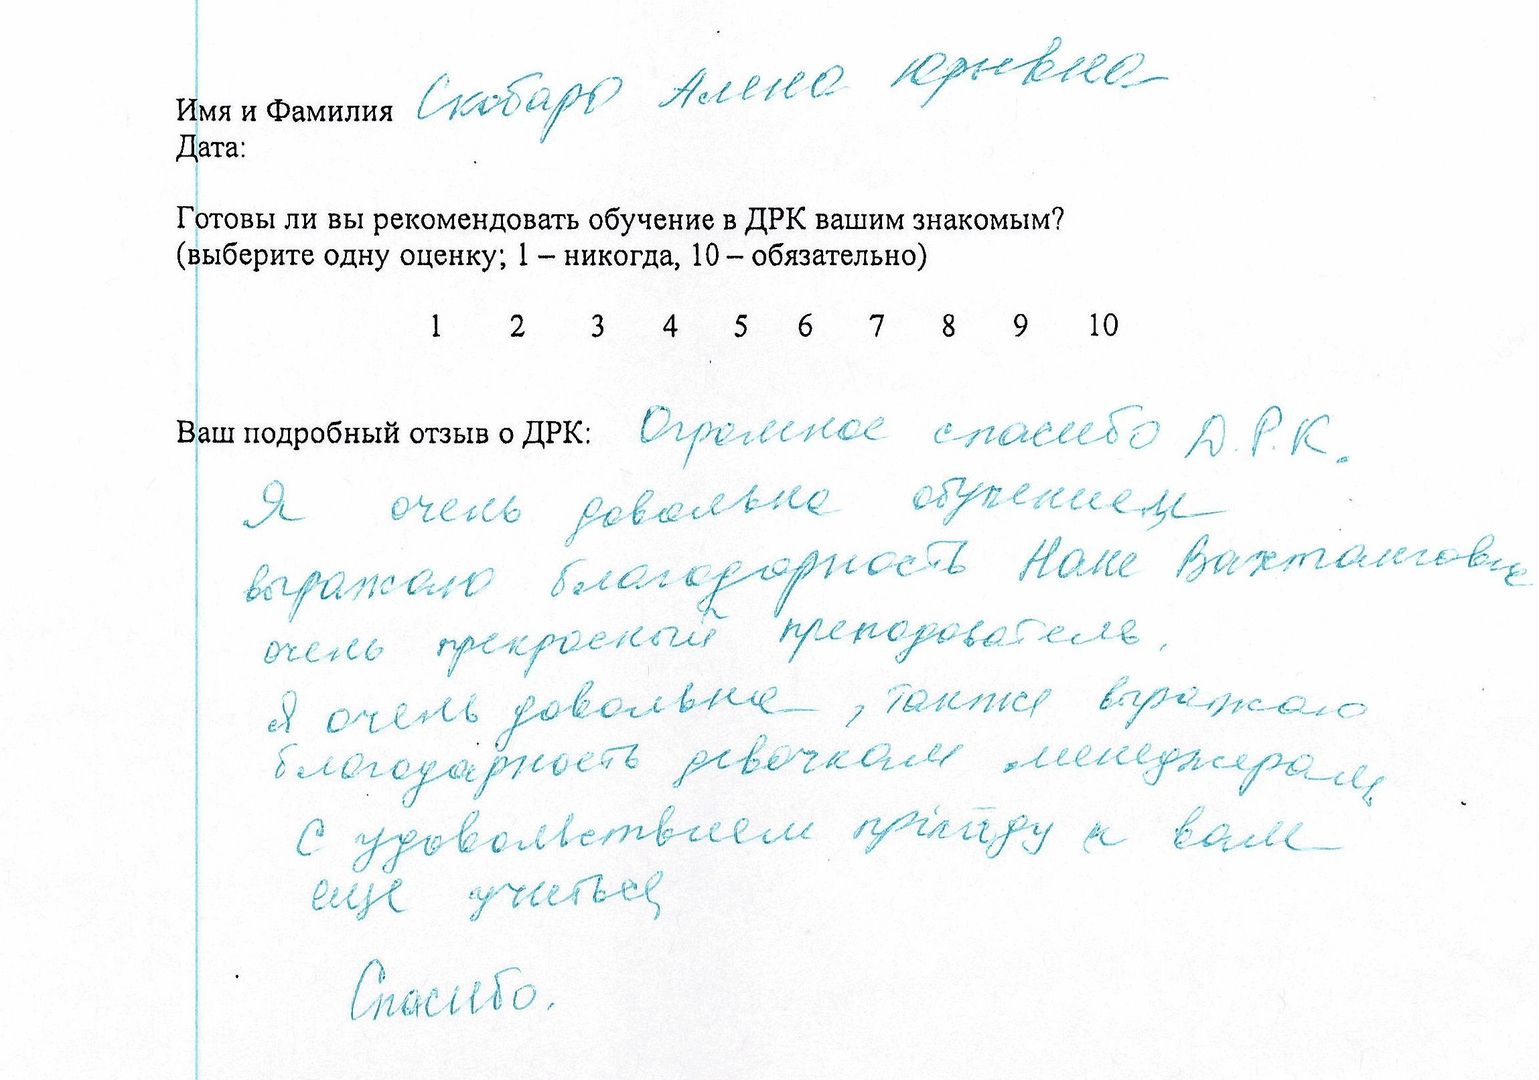 Имя и Фамилия Скобаро Алена Юрьевна
Дата:
Готовы ли вы рекомендовать обучение в ДРК вашим знакомым?
(выберите одну оценку; 1 – никогда, 10 – обязательно)
1 2 3 4 5 6 7 8 9 10
Ваш подробный отзыв о ДРК: Огромное спасибо Д.Р.К.
Я очень довольна обучением
выражаю благодарность Нане Вахтанговне
очень прекрасный преподователь.
Я очень довольна, также выражаю
благодарность девочкам менеджерам
С удовольствием прийду к вам
еще учиться
Спасибо.